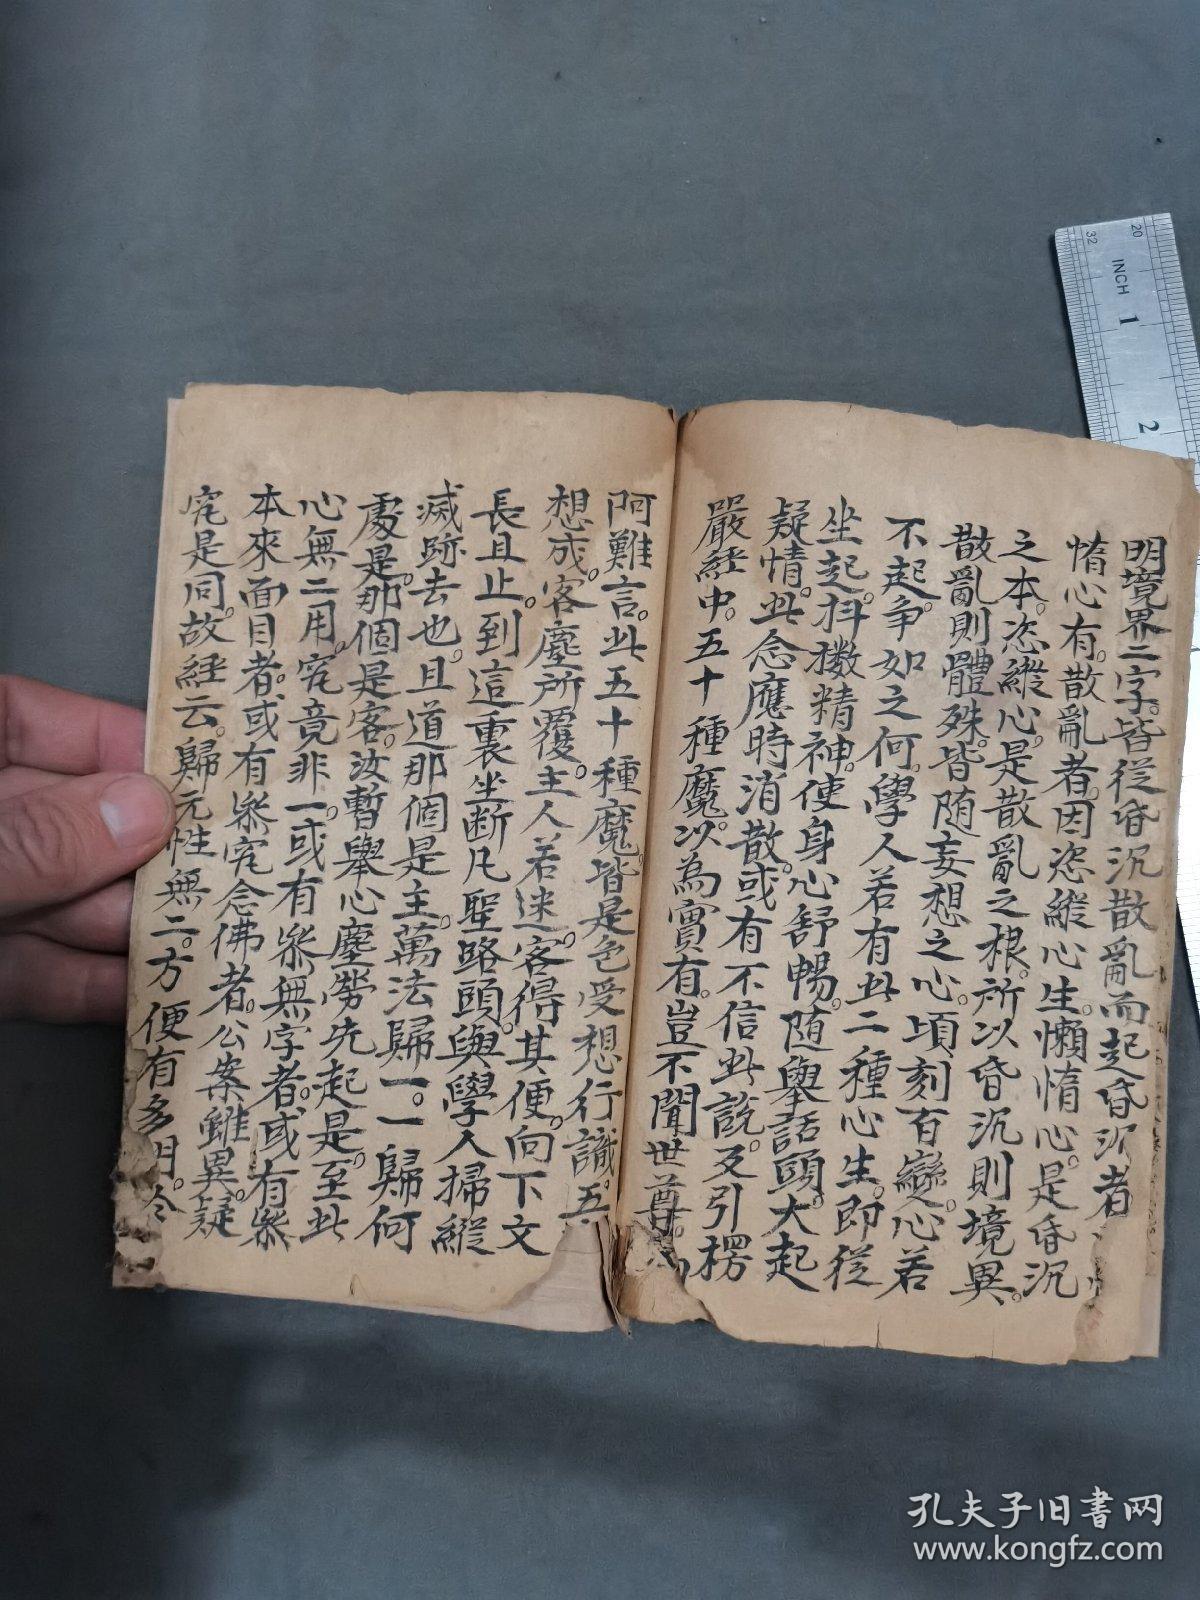 明境界二字。皆從昏沉散亂而起。昏沉者
惰心有。散亂者。因恣縱心生。懶惰心。是昏沉
之本。恣縱心。是散亂之根。所以昏沉則境異。
散亂則體殊。皆随妄想之心。頃刻百變。心若
不起。争如之何。學人若有此二種心生。即從
坐起。抖擻精神。使身心舒暢。随舉話頭。大起
疑情。此念應時消散。或有不信此說。及引楞
嚴經中。五十種魔。以為實有。豈不聞世尊
阿難言。此五十種魔。皆是色受想行識。五
想成。客塵所覆。主人若迷。客得其便。向下文
長且止。到這裏坐断凡聖路頭。與學人掃縱
滅跡去也。且道那個是主。萬法歸一。一歸何
處是。那個是客。汝暫舉心。塵勞先起是。至此
心無二用。究竟非一。或有叅無字者。或有叅
本來面目者。或有叅究念佛者。公案雖異。疑
究是同。故經云。歸元性無二。方便有多門。今
孔夫子旧书网
www.kongfz.com
INCH
1
2
32
20